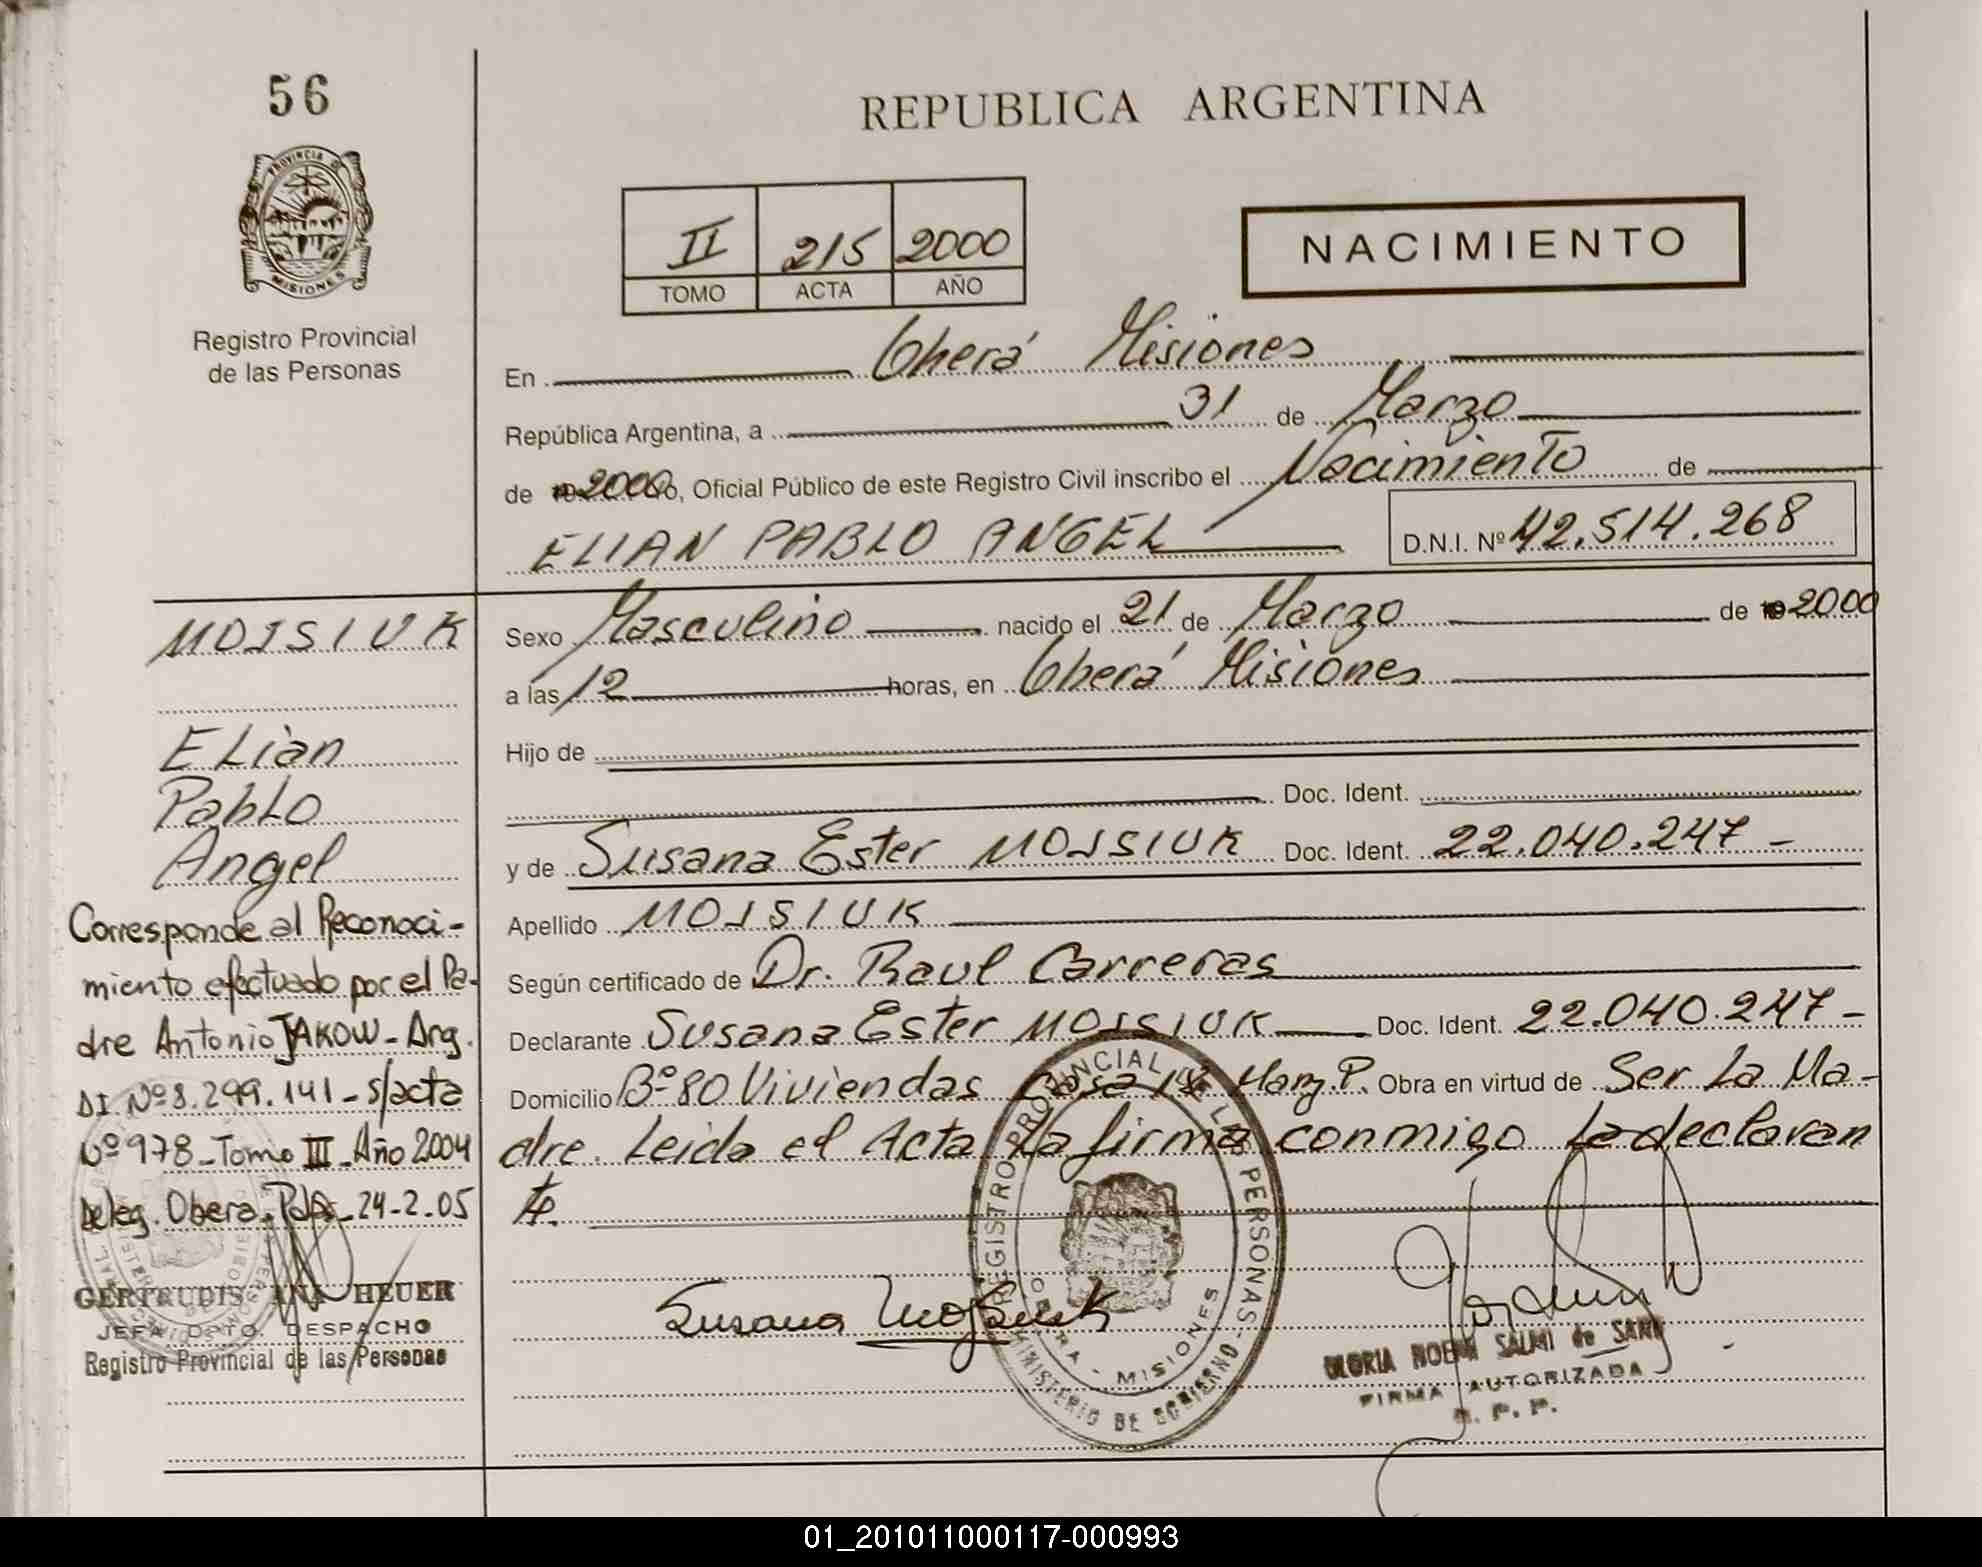 56
PROVINCIA DE
MISIONES
Registro Provincial
de las Personas
REPUBLICA ARGENTINA
II 215 2000
TOMO ACTA AÑO
NACIMIENTO
En Oberá Misiones
República Argentina, a 31 de Marzo
de 2000, Oficial Público de este Registro Civil inscribo el Nacimiento de
ELIAN PABLO ANGEL D.N.I. Nº 42.514.268
MOISIUK
Elian
Pablo
Angel
Corresponde al Reconoci-
miento efectuado por el Pa-
dre Antonio JAKOW - Arg.
DI Nº 8.299.141 - s/acta
Nº 978 - Tomo III - Año 2004
Deleg. Obera. Pdas - 24-2-05
GERTRUDIS ANA HEUER
JEFA DPTO. DESPACHO
Registro Provincial de las Personas
Sexo Masculino nacido el 21 de Marzo de 2000
a las 12 horas, en Oberá Misiones
Hijo de
Doc. Ident.
y de Susana Ester MOISIUK Doc. Ident. 22.040.247 -
Apellido MOISIUK
Según certificado de Dr. Raul Carreras
Declarante Susana Ester MOISIUK Doc. Ident. 22.040.247 -
Domicilio Bº 80 Viviendas Casa 18 Manz. P. Obra en virtud de Ser La Ma-
dre. Leida el Acta La firma conmigo La declaran
te.
REGISTRO PROVINCIAL DE LAS PERSONAS -
MINISTERIO DE GOBIERNO
OBERA - MISIONES
Susana Moisiuk
GLORIA NOEMI SALMI de SAND
FIRMA AUTORIZADA
R. P. P.
01_201011000117-000993